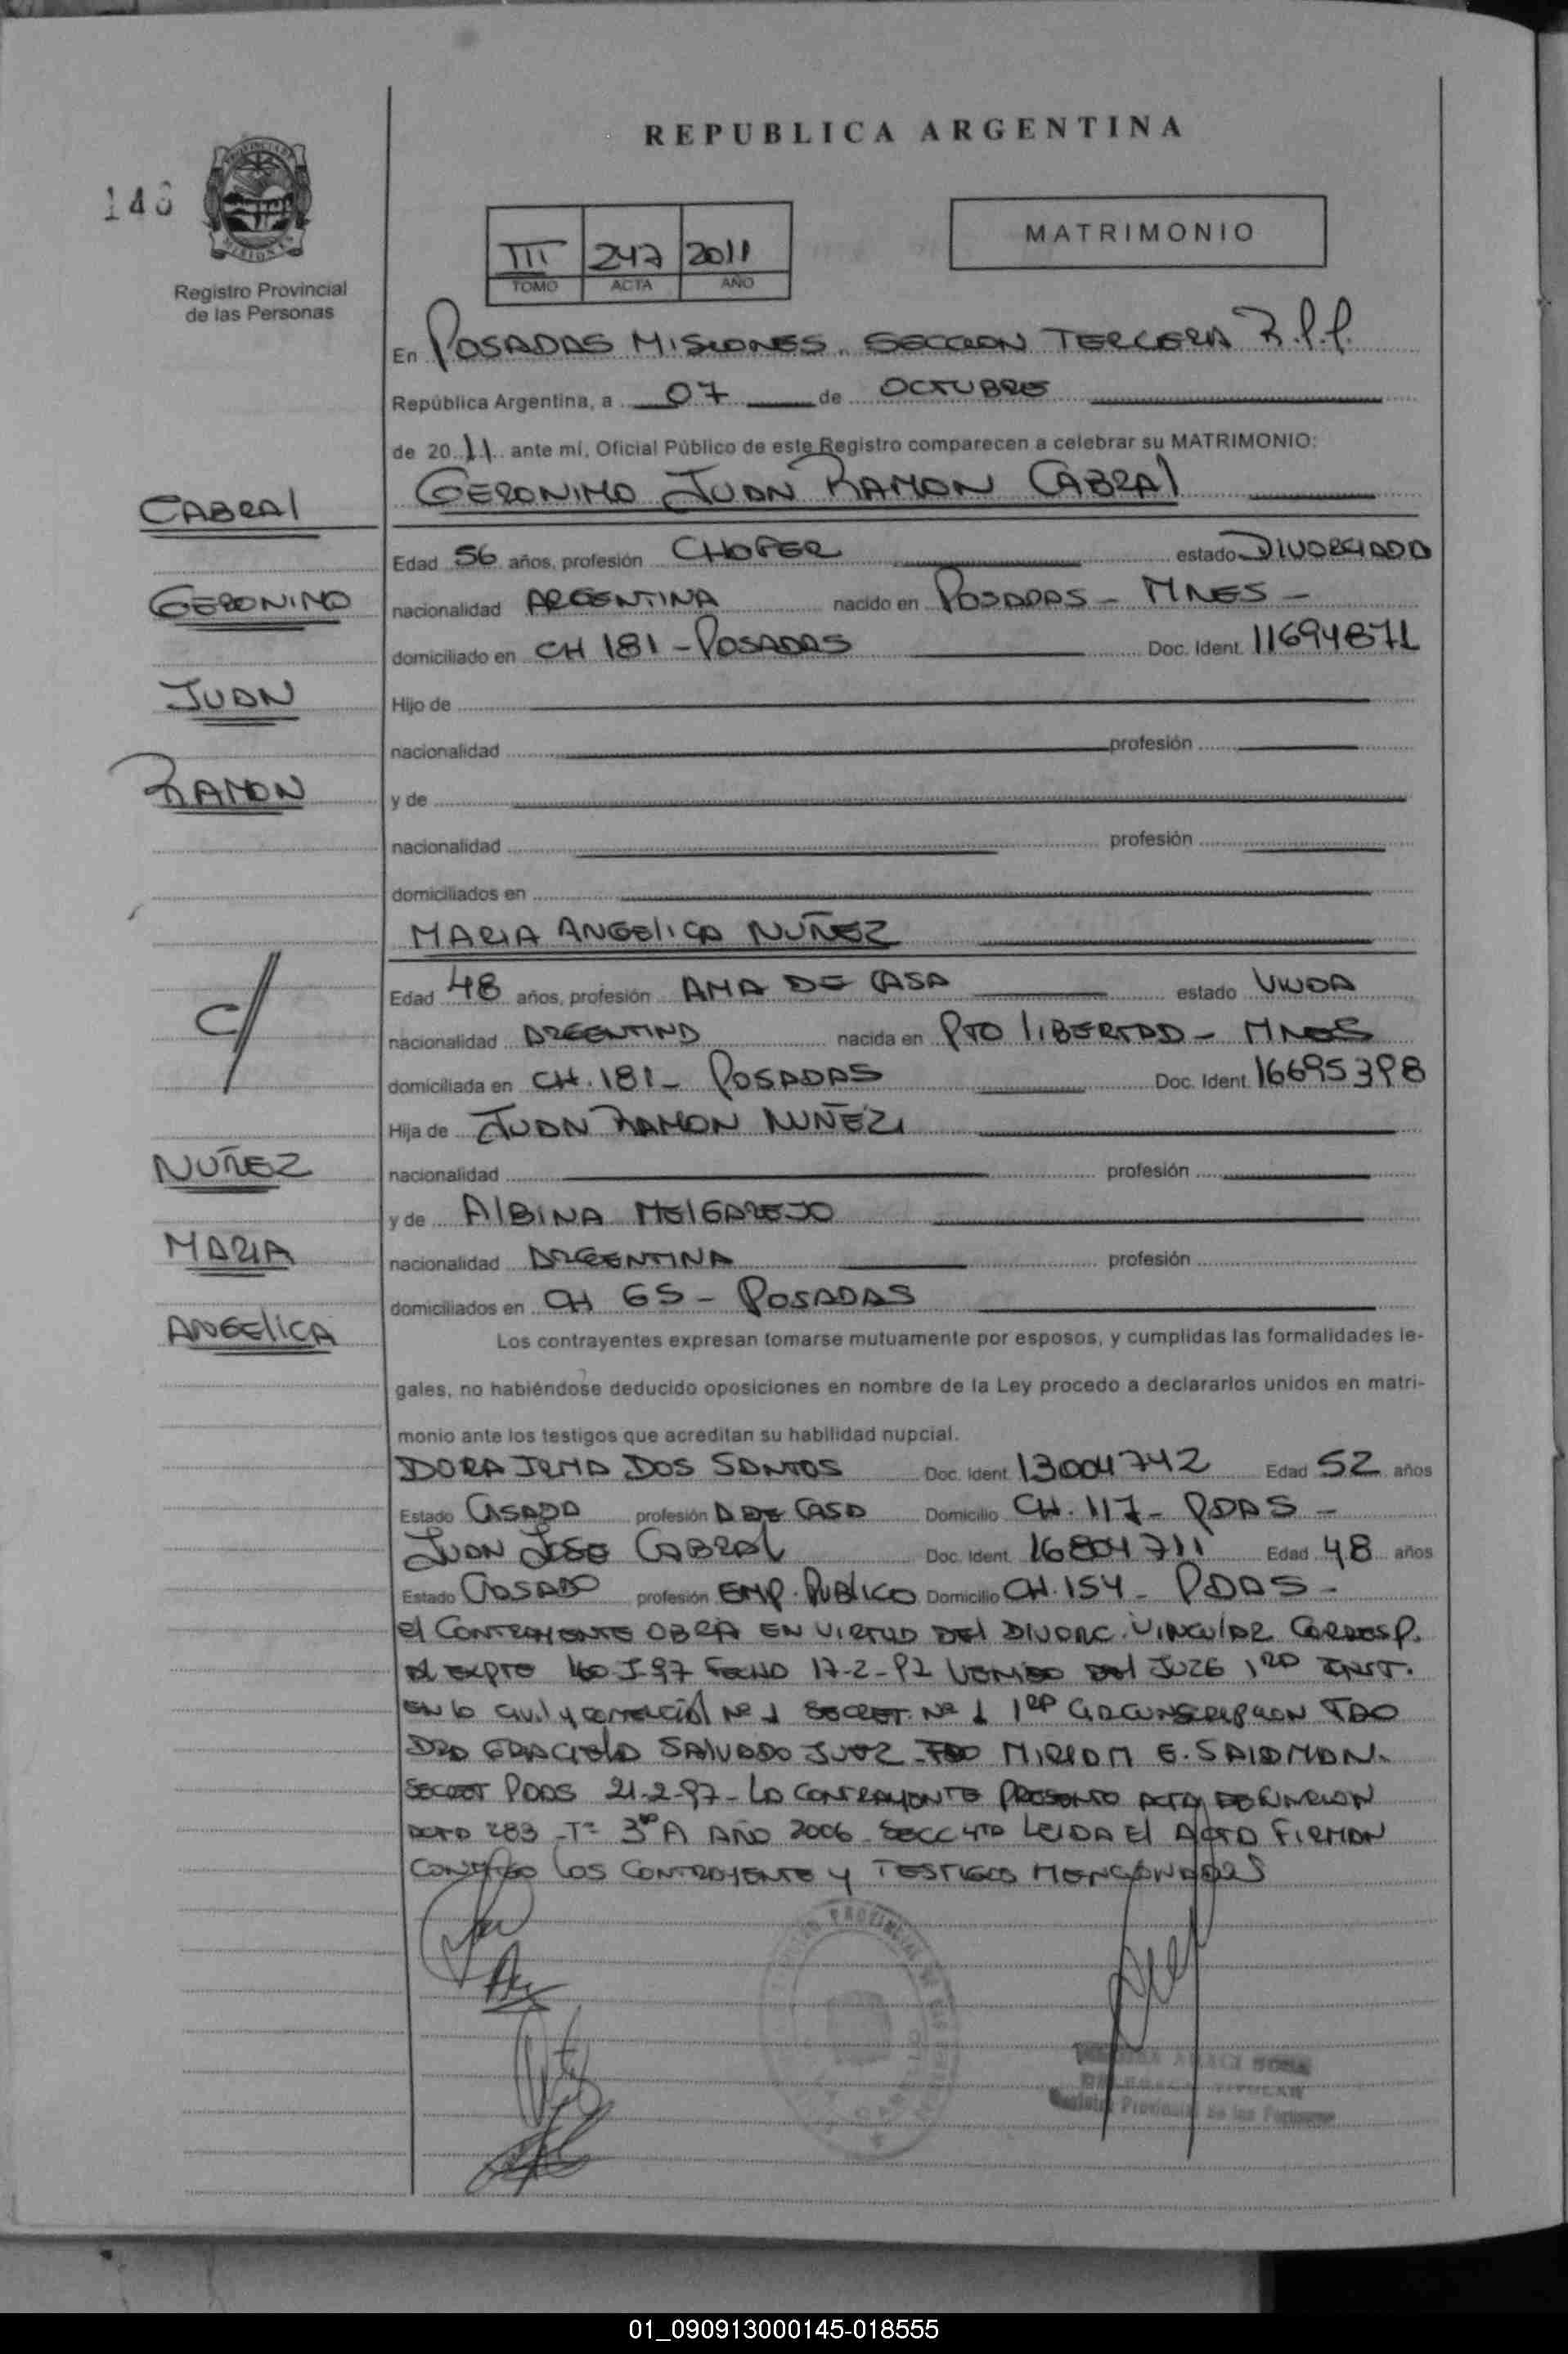 REPUBLICA ARGENTINA
146
PROVINCIA DE
MISIONES
Registro Provincial
de las Personas
III 247 2011
TOMO ACTA AÑO
MATRIMONIO
En POSADAS MISIONES. SECCION TERCERA R.P.P.
República Argentina, a 07 de OCTUBRE
de 2011 ante mí, Oficial Público de este Registro comparecen a celebrar su MATRIMONIO:
GERONIMO JUAN RAMON CABRAL
CABRAL
Edad 56 años, profesión CHOFER estado DIVORCIADO
GERONIMO
nacionalidad ARGENTINA nacido en POSADAS - MNES -
domiciliado en CH 181 - POSADAS Doc. Ident. 11694871
JUAN
Hijo de
nacionalidad profesión
RAMON
y de
nacionalidad profesión
domiciliados en
MARIA ANGELICA NUÑEZ
C/
Edad 48 años, profesión AMA DE CASA estado VIUDA
nacionalidad ARGENTINA nacida en PTO LIBERTAD - MNES
domiciliada en CH. 181 - POSADAS Doc. Ident. 16695398
Hija de JUAN RAMON NUÑEZ
NUÑEZ
nacionalidad profesión
y de ALBINA MELGAREJO
MARIA
nacionalidad ARGENTINA profesión
domiciliados en CH 65 - POSADAS
ANGELICA
Los contrayentes expresan tomarse mutuamente por esposos, y cumplidas las formalidades le-
gales, no habiéndose deducido oposiciones en nombre de la Ley procedo a declararlos unidos en matri-
monio ante los testigos que acreditan su habilidad nupcial.
DORA IRMA DOS SANTOS Doc. Ident. 13004742 Edad 52 años
Estado CASADA profesión A DE CASA Domicilio CH. 117 - PDAS -
JUAN JOSE CABRAL Doc. Ident. 16804711 Edad 48 años
Estado CASADO profesión EMP. PUBLICO Domicilio CH. 154 - PDAS -
EL CONTRAYENTE OBRA EN VIRTUD DEL DIVORC. VINCULAR CORRESP.
AL EXPTE 160 FECHA 17-2-97 DEL JUZG 1RO INST.
EN LO CIVIL Y COMERCIAL Nº 1 SECRET. Nº 1 1RA CIRCUNSCRIPCION FDO
DRA GRACIELA SALVADO JUEZ - FDO MIRIAM E.
SECRET PDAS 21-2-97 - LA CONTRAYENTE PRESENTO ACTA DEFUNCION
ACTA 283 - Tº 3º A AÑO 2006 - SECC 4TA LEIDA EL ACTA FIRMAN
CONMIGO LOS CONTRAYENTE Y TESTIGOS MENCIONADOS
Registro Provincial de las Personas
01_090913000145-018555